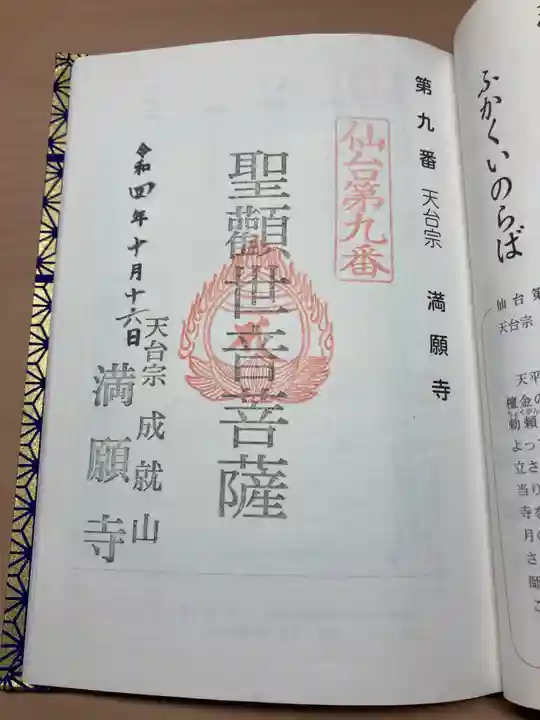 ふかくいのらば
仙台第
天台宗
天平
檀金の
勅願
ちょくがん
よって
立さ
当り
寺を
月の
さ
第九番 天台宗 満願寺
仙台第九番
聖観世音菩薩
天台宗 成就山
満願寺
令和四年十月十六日